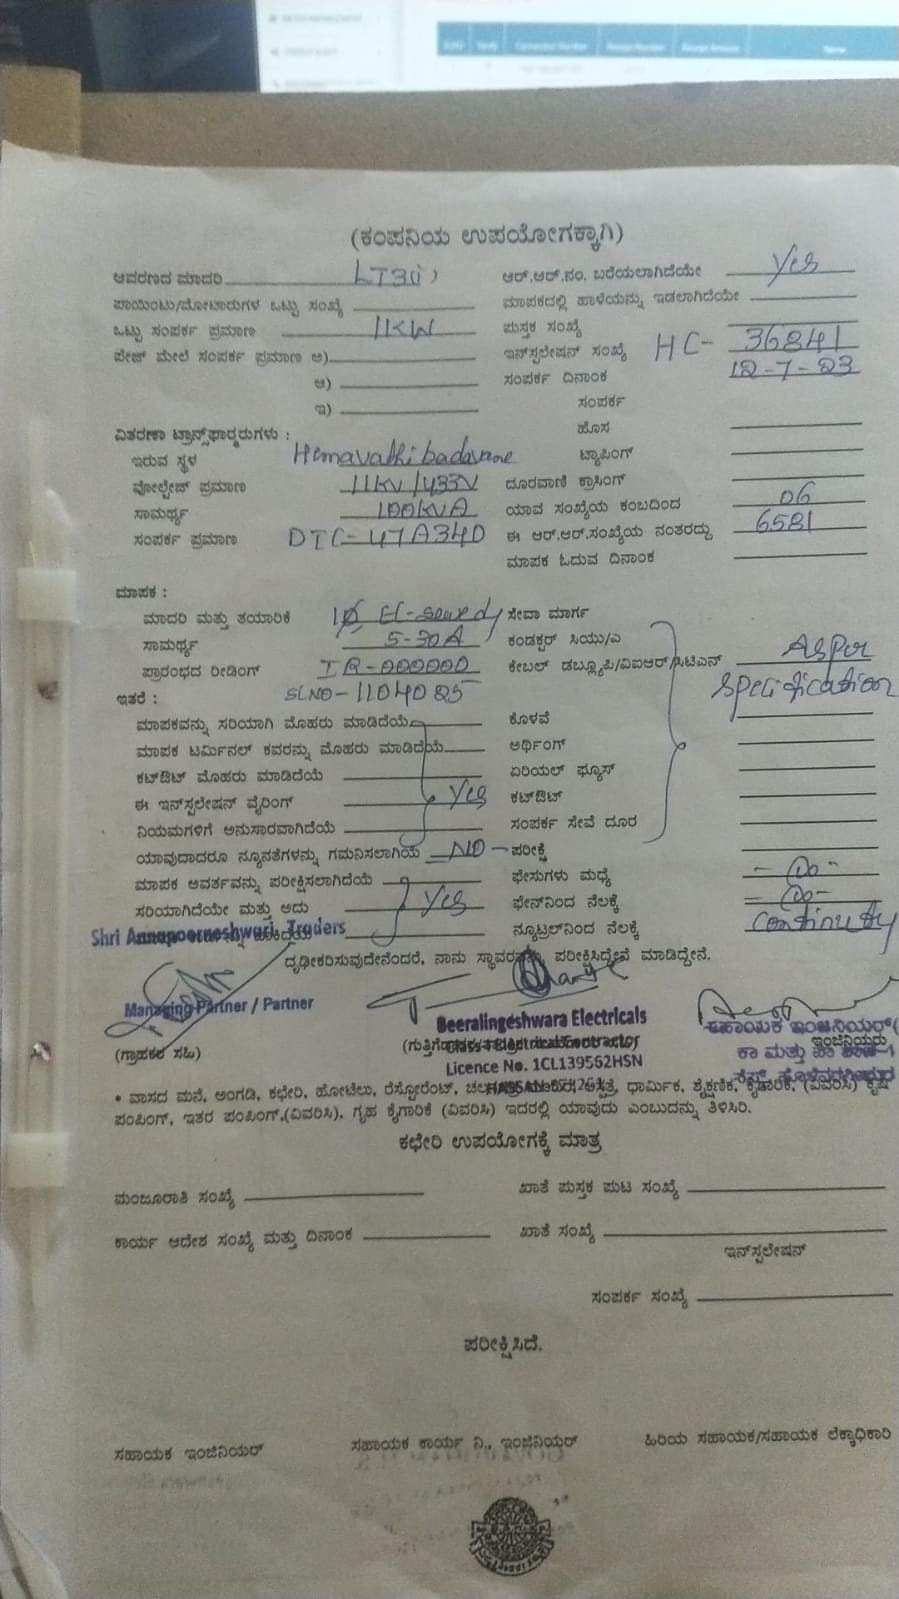 (ಕಂಪನಿಯ ಉಪಯೋಗಕ್ಕಾಗಿ)
ಆವರಣದ ಮಾದರಿ LT3(i) ಆರ್.ಆರ್.ನಂ. ಬರೆಯಲಾಗಿದೆಯೇ Yes
ಪಾಯಿಂಟು/ಮೋಟಾರುಗಳ ಒಟ್ಟು ಸಂಖ್ಯೆ ಮಾಪಕದಲ್ಲಿ ಹಾಳೆಯನ್ನು ಇಡಲಾಗಿದೆಯೇ
ಒಟ್ಟು ಸಂಪರ್ಕ ಪ್ರಮಾಣ 1KW ಪುಸ್ತಕ ಸಂಖ್ಯೆ
ಪೇಜ್ ಮೇಲೆ ಸಂಪರ್ಕ ಪ್ರಮಾಣ ಅ) ಇನ್‌ಸ್ಟಲೇಷನ್ ಸಂಖ್ಯೆ HC- 36841
ಆ) ಸಂಪರ್ಕ ದಿನಾಂಕ 12-7-23
ಇ) ಸಂಪರ್ಕ
ವಿತರಣಾ ಟ್ರಾನ್ಸ್‌ಫಾರ್ಮರುಗಳು : ಹೊಸ
ಇರುವ ಸ್ಥಳ Hemavathi badavane ಟ್ಯಾಪಿಂಗ್
ವೋಲ್ಟೇಜ್ ಪ್ರಮಾಣ 11KV/433V ದೂರವಾಣಿ ಕ್ರಾಸಿಂಗ್
ಸಾಮರ್ಥ್ಯ 100KVA ಯಾವ ಸಂಖ್ಯೆಯ ಕಂಬದಿಂದ 06
ಸಂಪರ್ಕ ಪ್ರಮಾಣ DTC-47A340 ಈ ಆರ್.ಆರ್.ಸಂಖ್ಯೆಯ ನಂತರದ್ದು 6581
ಮಾಪಕ ಓದುವ ದಿನಾಂಕ
ಮಾಪಕ :
ಮಾದರಿ ಮತ್ತು ತಯಾರಿಕೆ 1Ø ಸೇವಾ ಮಾರ್ಗ
ಸಾಮರ್ಥ್ಯ 5-30A ಕಂಡಕ್ಟರ್ ಸಿಯು/ಎ
ಪ್ರಾರಂಭದ ರೀಡಿಂಗ್ IR-000000 ಕೇಬಲ್ ಡಬ್ಲ್ಯೂಪಿ/ವಿಐಆರ್/ಸಿಟಿಎಸ್ As per
ಇತರೆ : SLNO-1104025 specification
ಮಾಪಕವನ್ನು ಸರಿಯಾಗಿ ಮೊಹರು ಮಾಡಿದೆಯೆ ಕೊಳವೆ
ಮಾಪಕ ಟರ್ಮಿನಲ್ ಕವರನ್ನು ಮೊಹರು ಮಾಡಿದೆಯೆ ಅರ್ಥಿಂಗ್
ಕಟ್‌ಔಟ್ ಮೊಹರು ಮಾಡಿದೆಯೆ ಏರಿಯಲ್ ಫ್ಯೂಸ್
ಈ ಇನ್‌ಸ್ಟಲೇಷನ್ ವೈರಿಂಗ್ Yes ಕಟ್‌ಔಟ್
ನಿಯಮಗಳಿಗೆ ಅನುಸಾರವಾಗಿದೆಯೆ ಸಂಪರ್ಕ ಸೇವೆ ದೂರ
ಯಾವುದಾದರೂ ನ್ಯೂನತೆಗಳನ್ನು ಗಮನಿಸಲಾಗಿಯೆ NO ಪರೀಕ್ಷೆ
ಮಾಪಕ ಅವರ್ತವನ್ನು ಪರೀಕ್ಷಿಸಲಾಗಿದೆಯೆ ಫೇಸುಗಳು ಮಧ್ಯೆ
ಸರಿಯಾಗಿದೆಯೇ ಮತ್ತು ಅದು Yes ಫೇಸ್‌ನಿಂದ ನೆಲಕ್ಕೆ
Shri Annapoorneshwari Traders ನ್ಯೂಟ್ರಲ್‌ನಿಂದ ನೆಲಕ್ಕೆ continuty
ದೃಢೀಕರಿಸುವುದೇನೆಂದರೆ, ನಾನು ಪರೀಕ್ಷಿಸಿದ್ದೇವೆ ಮಾಡಿದ್ದೇನೆ.
Managing Partner / Partner
Beeralingeshwara Electricals
ಸಹಾಯಕ ಇಂಜಿನಿಯರ್(
(ಗ್ರಾಹಕರ ಸಹಿ) Class-1 Electrical Contractor ಇಂಜಿನಿಯರು
Licence No. 1CL139562HSN ಕಾ ಮತ್ತು ಪಾ
HASSAN
* ವಾಸದ ಮನೆ, ಅಂಗಡಿ, ಕಛೇರಿ, ಹೋಟೆಲು, ರೆಸ್ಟೋರೆಂಟ್, ಧಾರ್ಮಿಕ, ಶೈಕ್ಷಣಿಕ, ಕೈಗಾರಿಕೆ, (ವಿವರಿಸಿ) ಕೃಷಿ
ಪಂಪಿಂಗ್, ಇತರ ಪಂಪಿಂಗ್,(ವಿವರಿಸಿ), ಗೃಹ ಕೈಗಾರಿಕೆ (ವಿವರಿಸಿ) ಇದರಲ್ಲಿ ಯಾವುದು ಎಂಬುದನ್ನು ತಿಳಿಸಿರಿ.
ಕಛೇರಿ ಉಪಯೋಗಕ್ಕೆ ಮಾತ್ರ
ಮಂಜೂರಾತಿ ಸಂಖ್ಯೆ ಖಾತೆ ಪುಸ್ತಕ ಪುಟ ಸಂಖ್ಯೆ
ಕಾರ್ಯ ಆದೇಶ ಸಂಖ್ಯೆ ಮತ್ತು ದಿನಾಂಕ ಖಾತೆ ಸಂಖ್ಯೆ
ಇನ್‌ಸ್ಟಲೇಷನ್
ಸಂಪರ್ಕ ಸಂಖ್ಯೆ
ಪರೀಕ್ಷಿಸಿದೆ.
ಸಹಾಯಕ ಇಂಜಿನಿಯರ್ ಸಹಾಯಕ ಕಾರ್ಯ ನಿ., ಇಂಜಿನಿಯರ್ ಹಿರಿಯ ಸಹಾಯಕ/ಸಹಾಯಕ ಲೆಕ್ಕಾಧಿಕಾರಿ